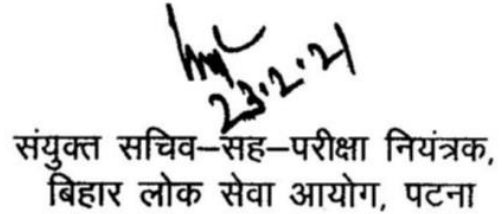 23.2.21
संयुक्त सचिव–सह–परीक्षा नियंत्रक,
बिहार लोक सेवा आयोग, पटना